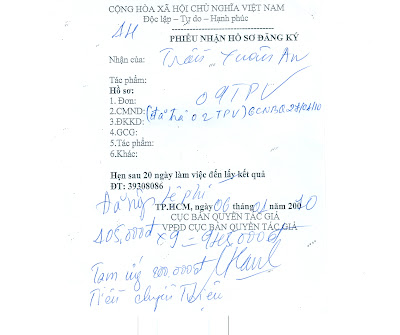 CỘNG HÒA XÃ HỘI CHỦ NGHĨA VIỆT NAM
Độc lập – Tự do – Hạnh phúc
PHIẾU NHẬN HỒ SƠ ĐĂNG KÝ
Nhận của: Trần Xuân An
Tác phẩm:
Hồ sơ: 09TPV
1. Đơn:
2.CMND: (đã trả 02TPV)
3.ĐKKD:
4.GCG:
5.Tác phẩm:
6.Khác:
Hẹn sau 20 ngày làm việc đến lấy kết quả
ĐT: 39308086
Đã nộp lệ phí
TP.HCM, ngày 06 tháng 01 năm 200 10
CỤC BẢN QUYỀN TÁC GIẢ
VPĐD CỤC BẢN QUYỀN TÁC GIẢ
105.000đ x 9 = 945.000đ
Tạm ứng 200.000đ
Tiền chuyển